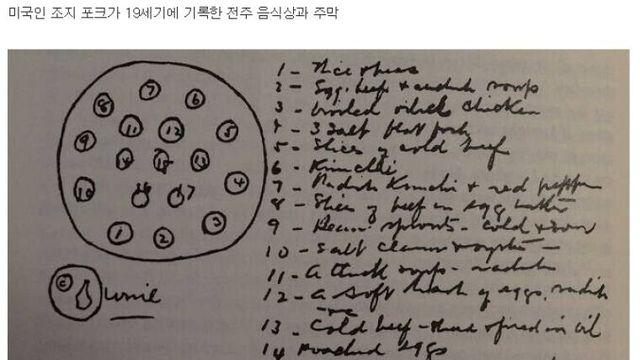 미국인 조지 포크가 19세기에 기록한 전주 음식상과 주막
7
8 6
11 12 5
9
14 15 13
10 16 17 4
3
1 2
wine
1 – Rice & beans
2 – Egg, beef & radish soup
3 – broiled chicken
4 – 3 salt
5 – Slices of cold beef
6 – Kimchi
7 – Radish Kimchi & red pepper
8 – Slices of beef in egg batter
9 – Bean sprouts – cold & sour
10 – Salt clams & oysters –
11 – A thick soup – radish
12 – A soft hash of eggs, radish
13 – Cold beef – fried in oil
14 poached eggs